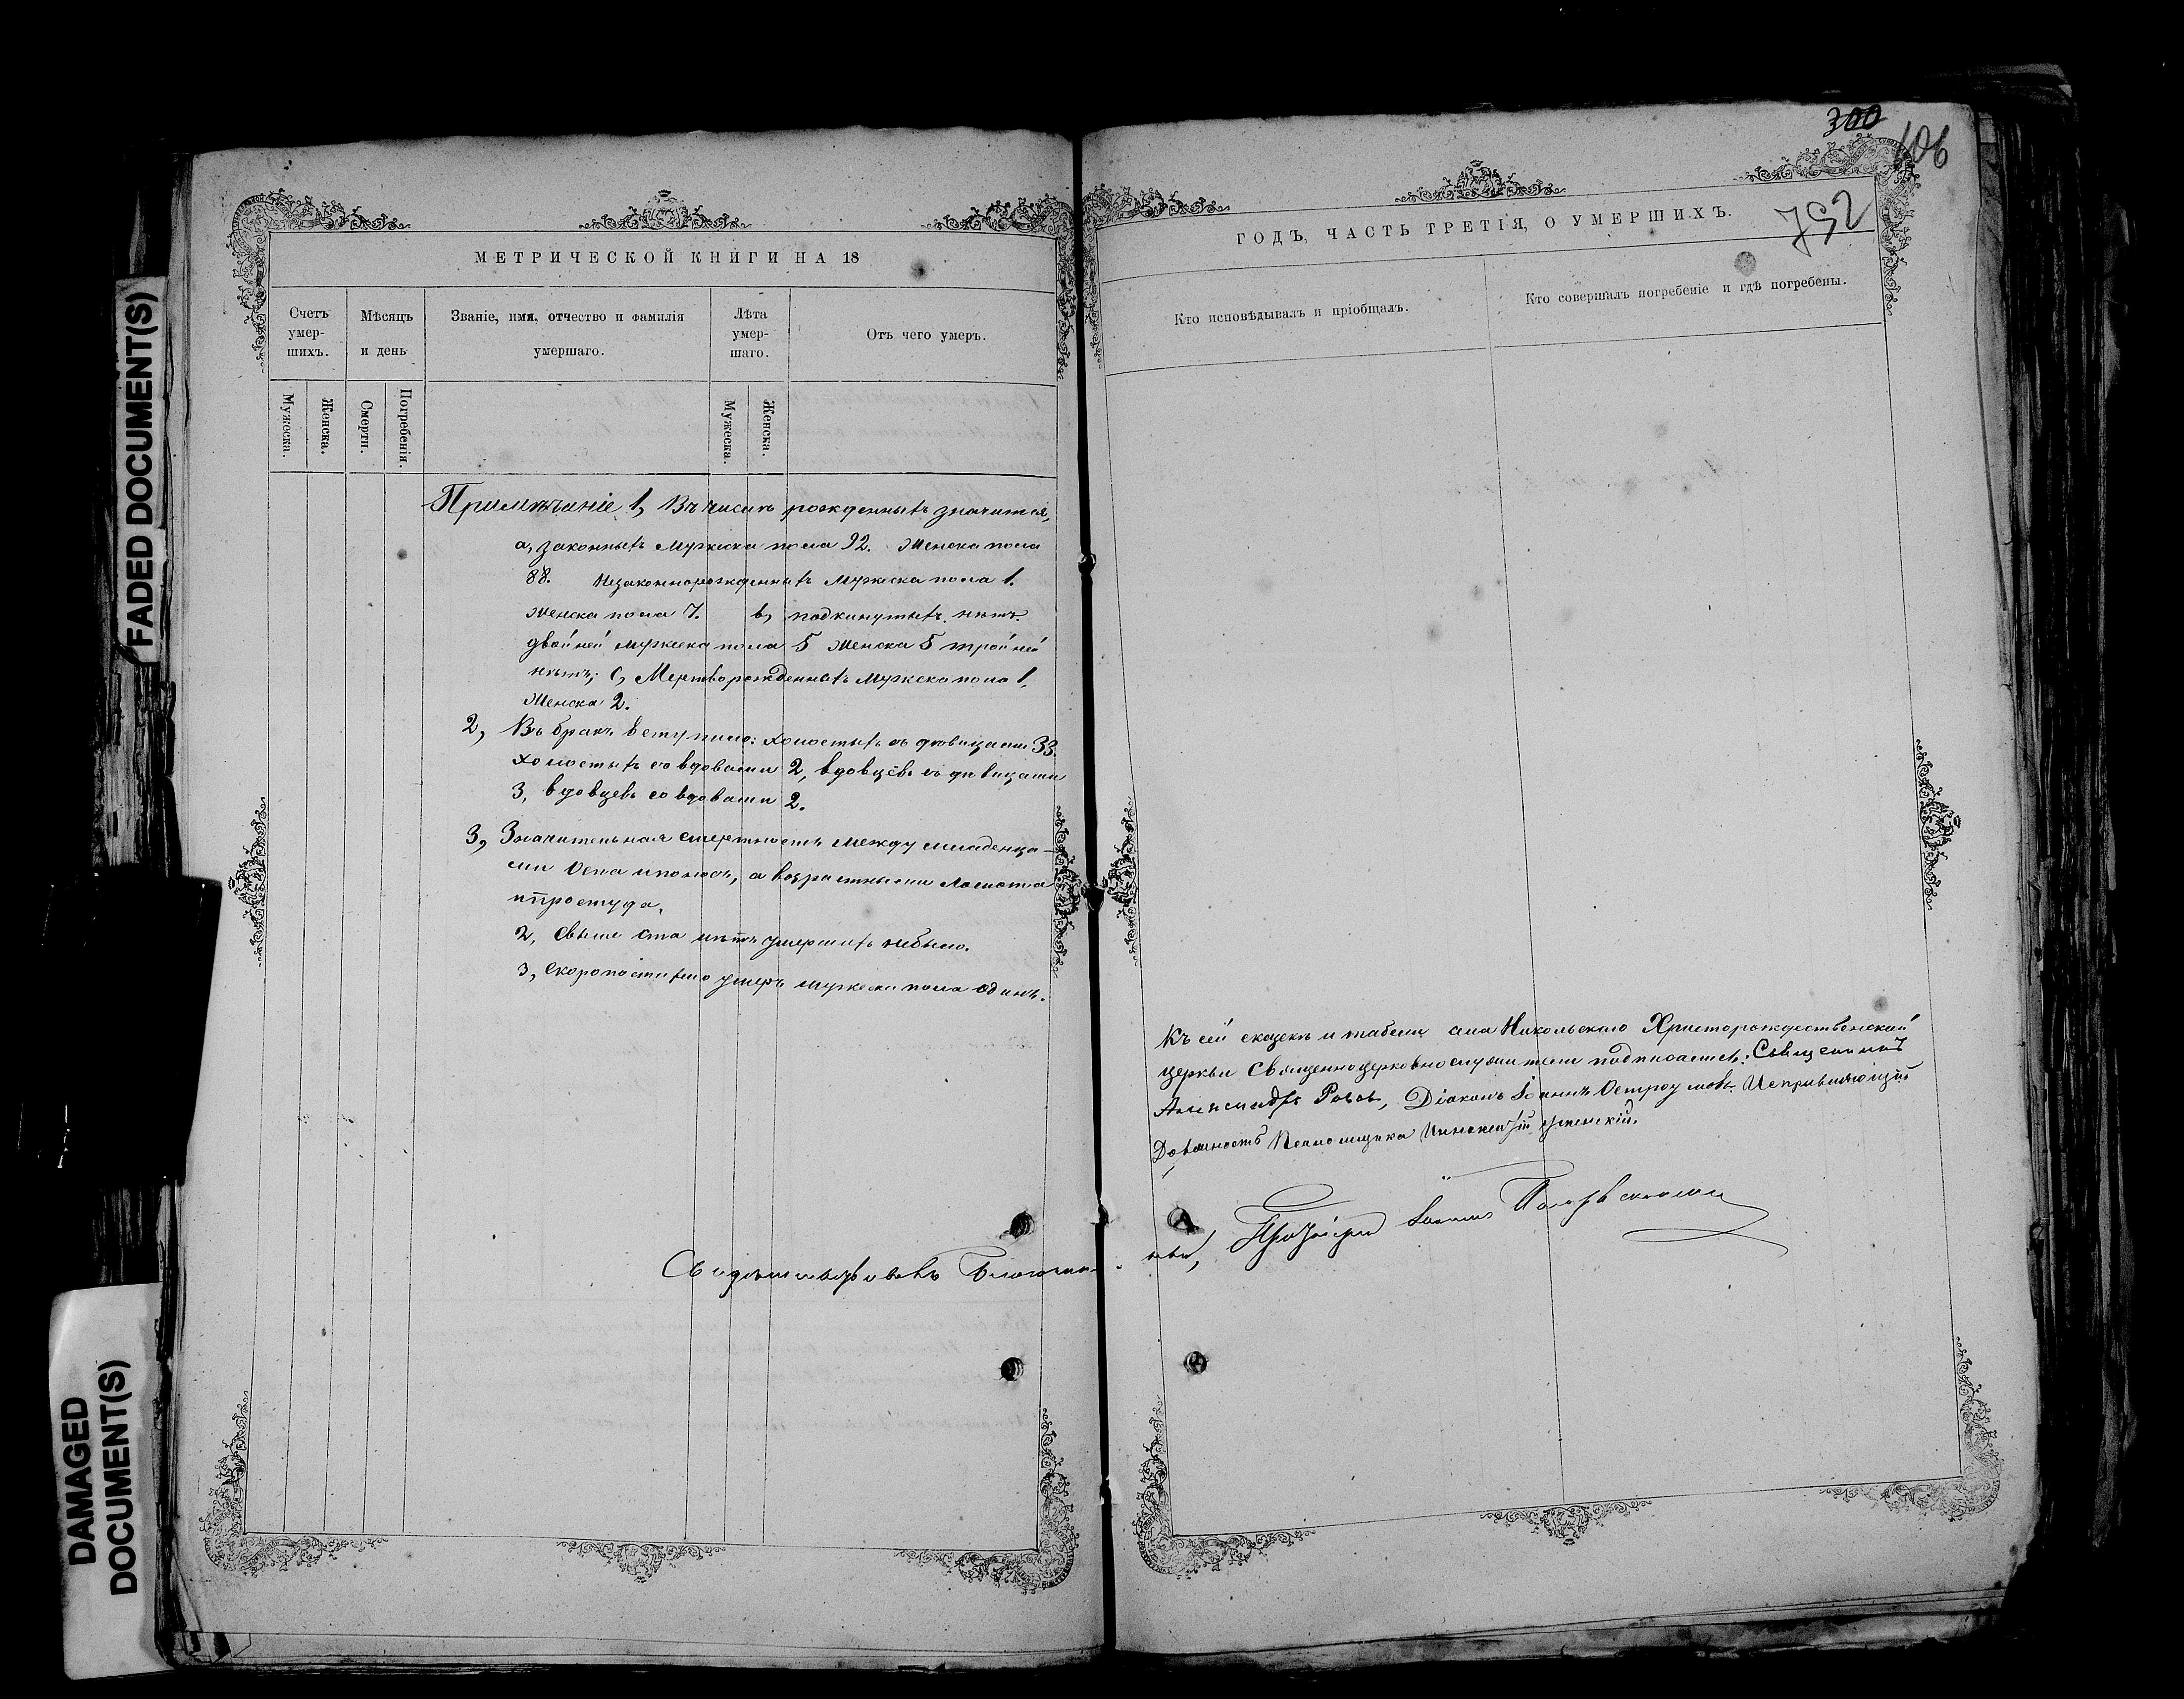 FADED DOCUMENT(S)
DAMAGED
DOCUMENT(S)
МЕТРИЧЕСКОЙ КНИГИ НА 18
Счетъ
умер-
шихъ.
Мѣсяцъ
и день
Званіе, имя, отчество и фамилія
умершаго.
Лѣта
умер-
шаго.
Отъ чего умеръ.
Мужеска.
Женска.
Смерти.
Погребенія.
Мужеска.
Женска.
Примѣчаніе 1, Въ числѣ рожденныхъ значится,
а, законныхъ мужеска пола 92. Женска пола
88. Незаконнорожденныхъ мужеска пола 1.
Женска пола 7. в, подкинутыхъ нѣтъ.
двойней мужеска пола 5 Женска 5 тройней
нѣтъ; с, Мертворожденныхъ мужеска пола 1,
Женска 2.
2, Въ бракъ вступило: холостыхъ съ дѣвицами 33.
холостыхъ со вдовами 2, вдовцевъ съ дѣвицами
3, вдовцевъ со вдовами 2.
3, Значительная смертность между младенца-
ми Оспа и поносъ, а возрастными ломота
и простуда.
2, Свыше ста лѣтъ умершихъ небыло.
3, Скоропостижно умеръ мужеска пола одинъ.
Свидѣтельствовалъ Благочин-
300
106
792
ГОДЪ, ЧАСТЬ ТРЕТІЯ, О УМЕРШИХЪ.
Кто исповѣдывалъ и пріобщалъ.
Кто совершалъ погребеніе и гдѣ погребены.
Къ сей сказкѣ и табели села Никольскаго Христорождественской
церкви Священноцерковнослужители подписались: Священникъ
Александръ Діаконъ Іоаннъ Остроумовъ. Исправляющій
Должность Псаломщика Иннокентій Успенскій.
ный, Протоіерей Іоаннъ